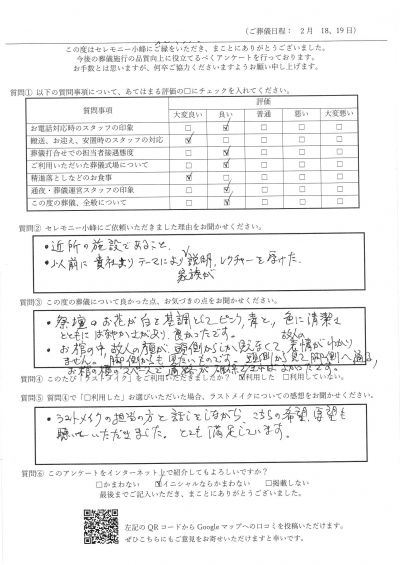 (ご葬儀日程： 2月 18、19日)
この度はセレモニー小峰にご縁をいただき、まことにありがとうございました。
今後の葬儀施行の品質向上に役立てるべくアンケートを行っております。
お手数とは思いますが、何卒ご協力くださいますようお願い申し上げます。
質問① 以下の質問事項について、あてはまる評価の□にチェックを入れてください。
質問事項 評価
大変良い 良い 普通 悪い 大変悪い
お電話対応時のスタッフの印象 □ ☑ □ □ □
搬送、お迎え、安置時のスタッフの対応 ☑ □ □ □ □
葬儀打合せでの担当者接遇態度 □ ☑ □ □ □
ご利用いただいた葬儀式場について □ ☑ □ □ □
精進落としなどのお食事 ☑ □ □ □ □
通夜・葬儀運営スタッフの印象 □ ☑ □ □ □
この度の葬儀、全般について □ ☑ □ □ □
質問② セレモニー小峰にご依頼いただきました理由をお聞かせください。
・近所の施設であること。
・以前に貴社より テーマにより説明、レクチャーを受けた。
家族が
質問③ この度の葬儀について良かった点、お気づきの点をお聞かせください。
・祭壇のお花が白を基調としてピンク、青と、色に清潔さ
とともにはなやかさがあり、良かったです。
・お棺の中、故人の顔が、頭側からしかみえなくて、表情がわかり
故人の
ません。脚側からも見たいものです。頭側から見て脚側へ
質問④ このたび「ラストメイク」をご利用いただきましたか？ ☑利用した □利用していない。
質問⑤ 質問④で「□利用した」お選びいただいた場合、ラストメイクについての感想をお聞かせください。
・ラストメイクの担当の方と話しをしながら、こちらの希望、要望も
聴いていただきました。とても満足しています。
質問⑥ このアンケートをインターネット上で紹介してもよろしいですか？
□かまわない ☑イニシャルならかまわない □掲載しない
最後までご記入いただき、まことにありがとうございました。
左記のQRコードからGoogleマップへの口コミを投稿いただけます。
ぜひこちらにもご意見をお寄せいただけますと幸いです。